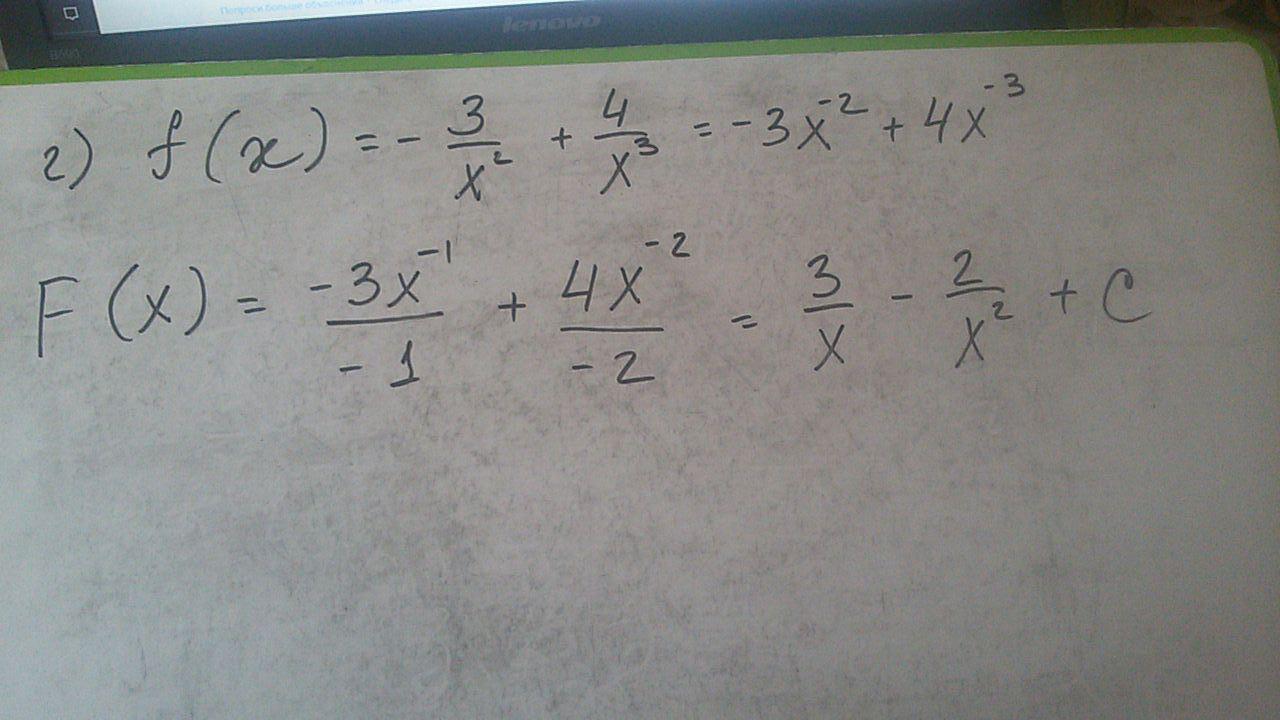 Попроси больше объяснений
lenovo
B590
г) f(x) = - 3/x² + 4/x³ = -3x⁻² + 4x⁻³
F(x) = -3x⁻¹/-1 + 4x⁻²/-2 = 3/x - 2/x² + C